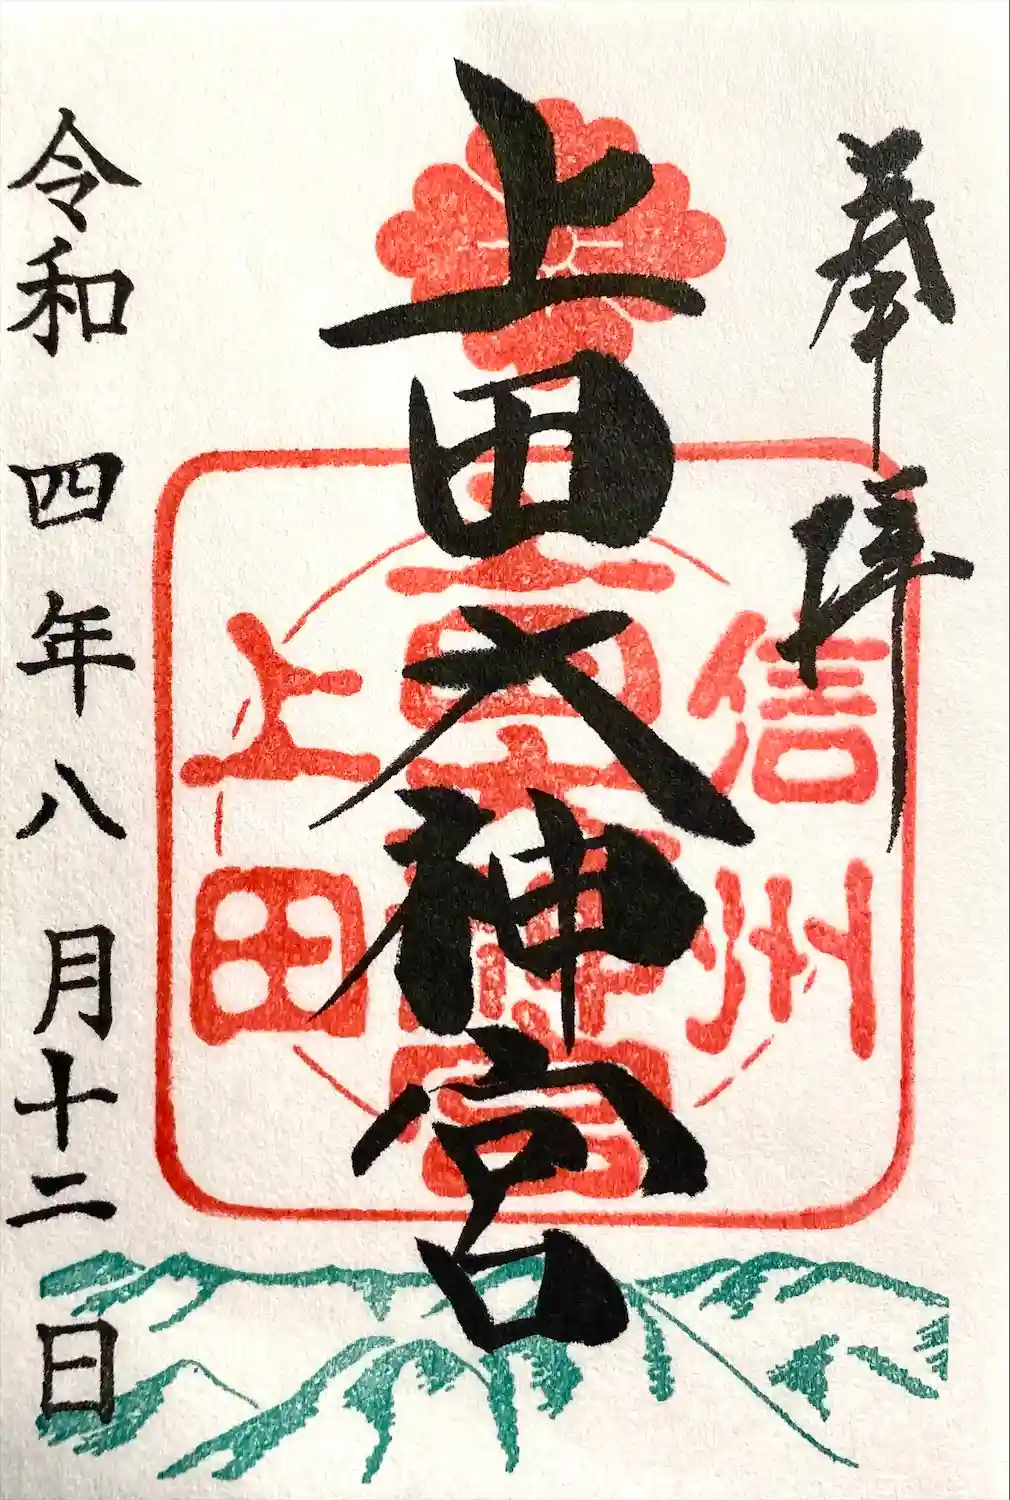 奉拝
上田大神宮
信州
上田大神宮
上田
令和四年八月十二日